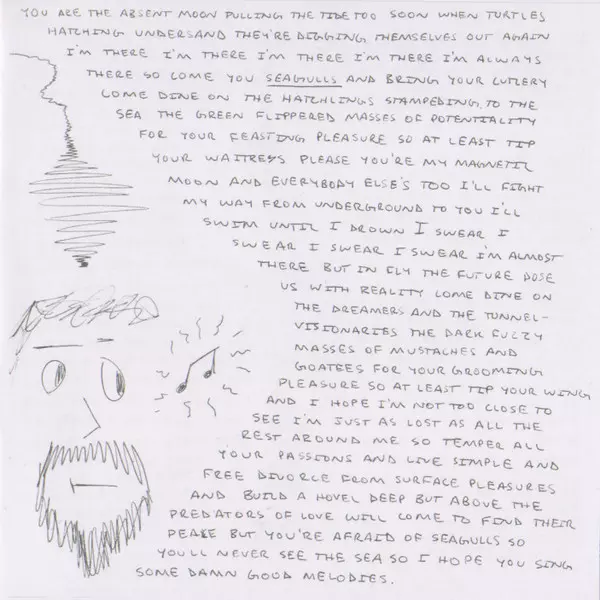 YOU ARE THE ABSENT MOON PULLING THE TIDE TOO SOON WHEN TURTLES
HATCHING UNDERSAND THEY'RE DIGGING THEMSELVES OUT AGAIN
I'M THERE I'M THERE I'M THERE I'M THERE I'M ALWAYS
THERE SO COME YOU SEAGULLS AND BRING YOUR CUTLERY
COME DINE ON THE HATCHLINGS STAMPEDING TO THE
SEA THE GREEN FLIPPERED MASSES OF POTENTIALITY
FOR YOUR FEASTING PLEASURE SO AT LEAST TIP
YOUR WAITRESS PLEASE YOU'RE MY MAGNETIC
MOON AND EVERYBODY ELSE'S TOO I'LL FIGHT
MY WAY FROM UNDERGROUND TO YOU I'LL
SWIM UNTIL I DROWN I SWEAR I
SWEAR I SWEAR I SWEAR I'M ALMOST
THERE BUT IN FLY THE FUTURE DOSE
US WITH REALITY COME DINE ON
THE DREAMERS AND THE TUNNEL-
VISIONARIES THE DARK FUZZY
MASSES OF MUSTACHES AND
GOATEES FOR YOUR GROOMING
PLEASURE SO AT LEAST TIP YOUR WING
AND I HOPE I'M NOT TOO CLOSE TO
SEE I'M JUST AS LOST AS ALL THE
REST AROUND ME SO TEMPER ALL
YOUR PASSIONS AND LIVE SIMPLE AND
FREE DIVORCE FROM SURFACE PLEASURES
AND BUILD A HOVEL DEEP BUT ABOVE THE
PREDATORS OF LOVE WILL COME TO FIND THEIR
PEACE BUT YOU'RE AFRAID OF SEAGULLS SO
YOU'LL NEVER SEE THE SEA SO I HOPE YOU SING
SOME DAMN GOOD MELODIES.